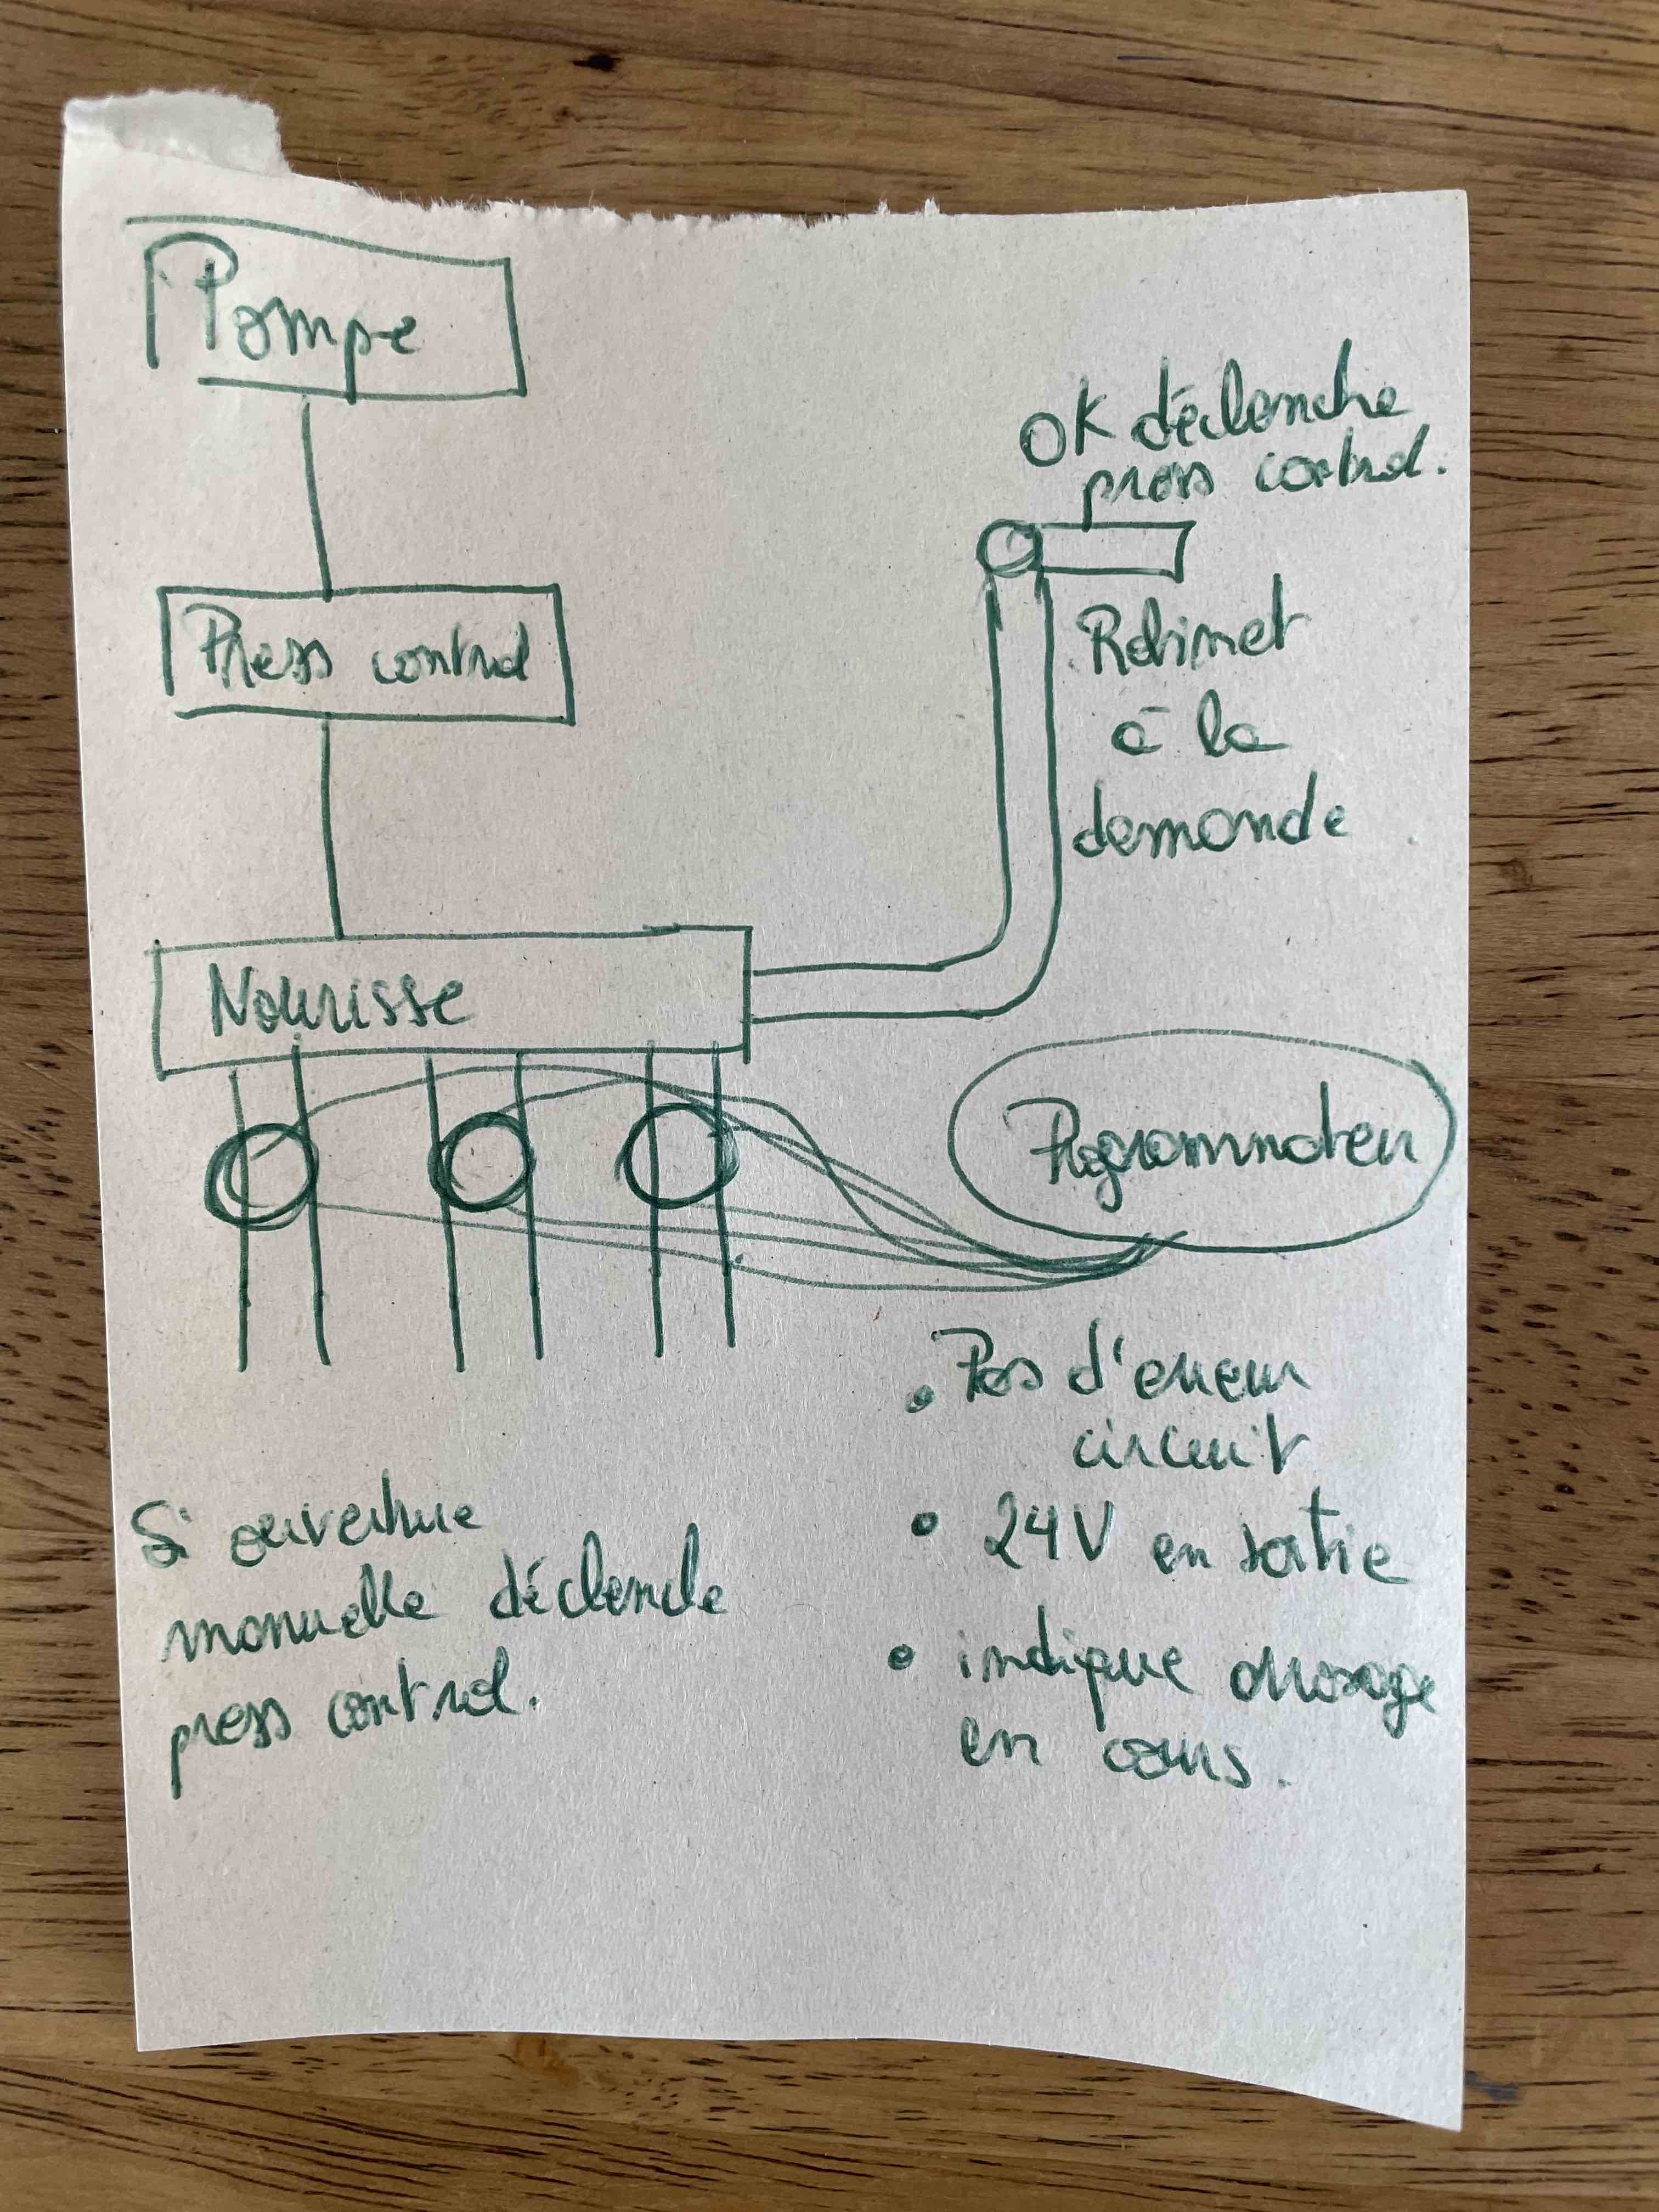 Pompe
OK déclenche
press control.
Press control
Robinet
à la
demande
Nourisse
Programmateur
Si ouverture
manuelle déclenche
press control.
• Pas d'erreur
circuit
• 24V en sortie
• indique arrosage
en cours.